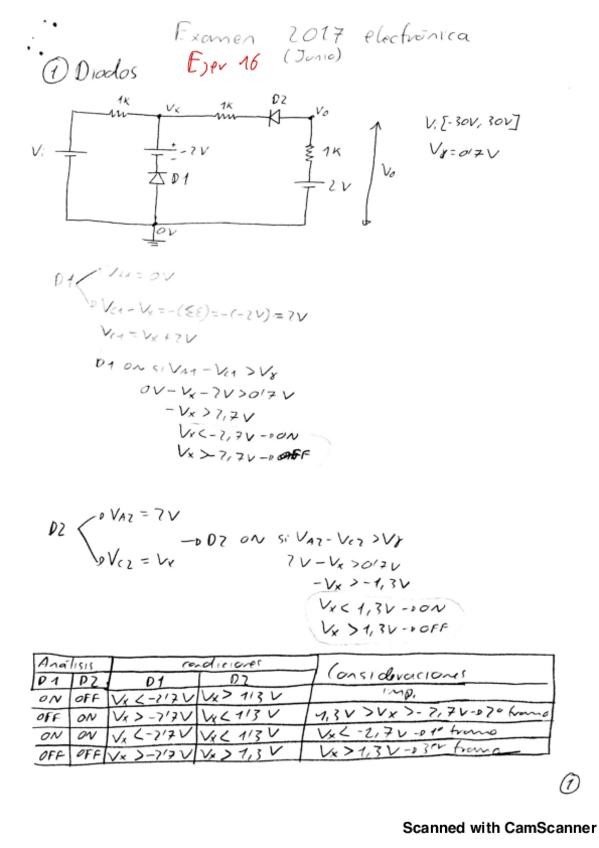 Examen 2017 electrónica
Ejer 16 (Junio)
① Diodos
1K Vx 1K D2 Vo
Vi -2V 1K Vo
D1 2V
0V
Vi [-30V, 30V]
Vγ=0'7V
D1 VA1=0V
VC1-Vx=-(ΣE)=-(-2V)=2V
VC1=Vx+2V
D1 ON si VA1-VC1>Vγ
0V-Vx-2V>0'7V
-Vx>2,7V
Vx<-2,7V→ON
Vx>-2,7V→OFF
D2 VA2=2V
VC2=Vx
→D2 ON si VA2-VC2>Vγ
2V-Vx>0'7V
-Vx>-1,3V
Vx<1,3V→ON
Vx>1,3V→OFF
Análisis condiciones Consideraciones
D1 D2 D1 D2
ON OFF Vx<-2'7V Vx>1'3V imp.
OFF ON Vx>-2'7V Vx<1'3V 1,3V>Vx>-2,7V→2º tramo
ON ON Vx<-2'7V Vx<1'3V Vx<-2,7V→1º tramo
OFF OFF Vx>-2'7V Vx>1,3V Vx>1,3V→3er tramo
①
Scanned with CamScanner